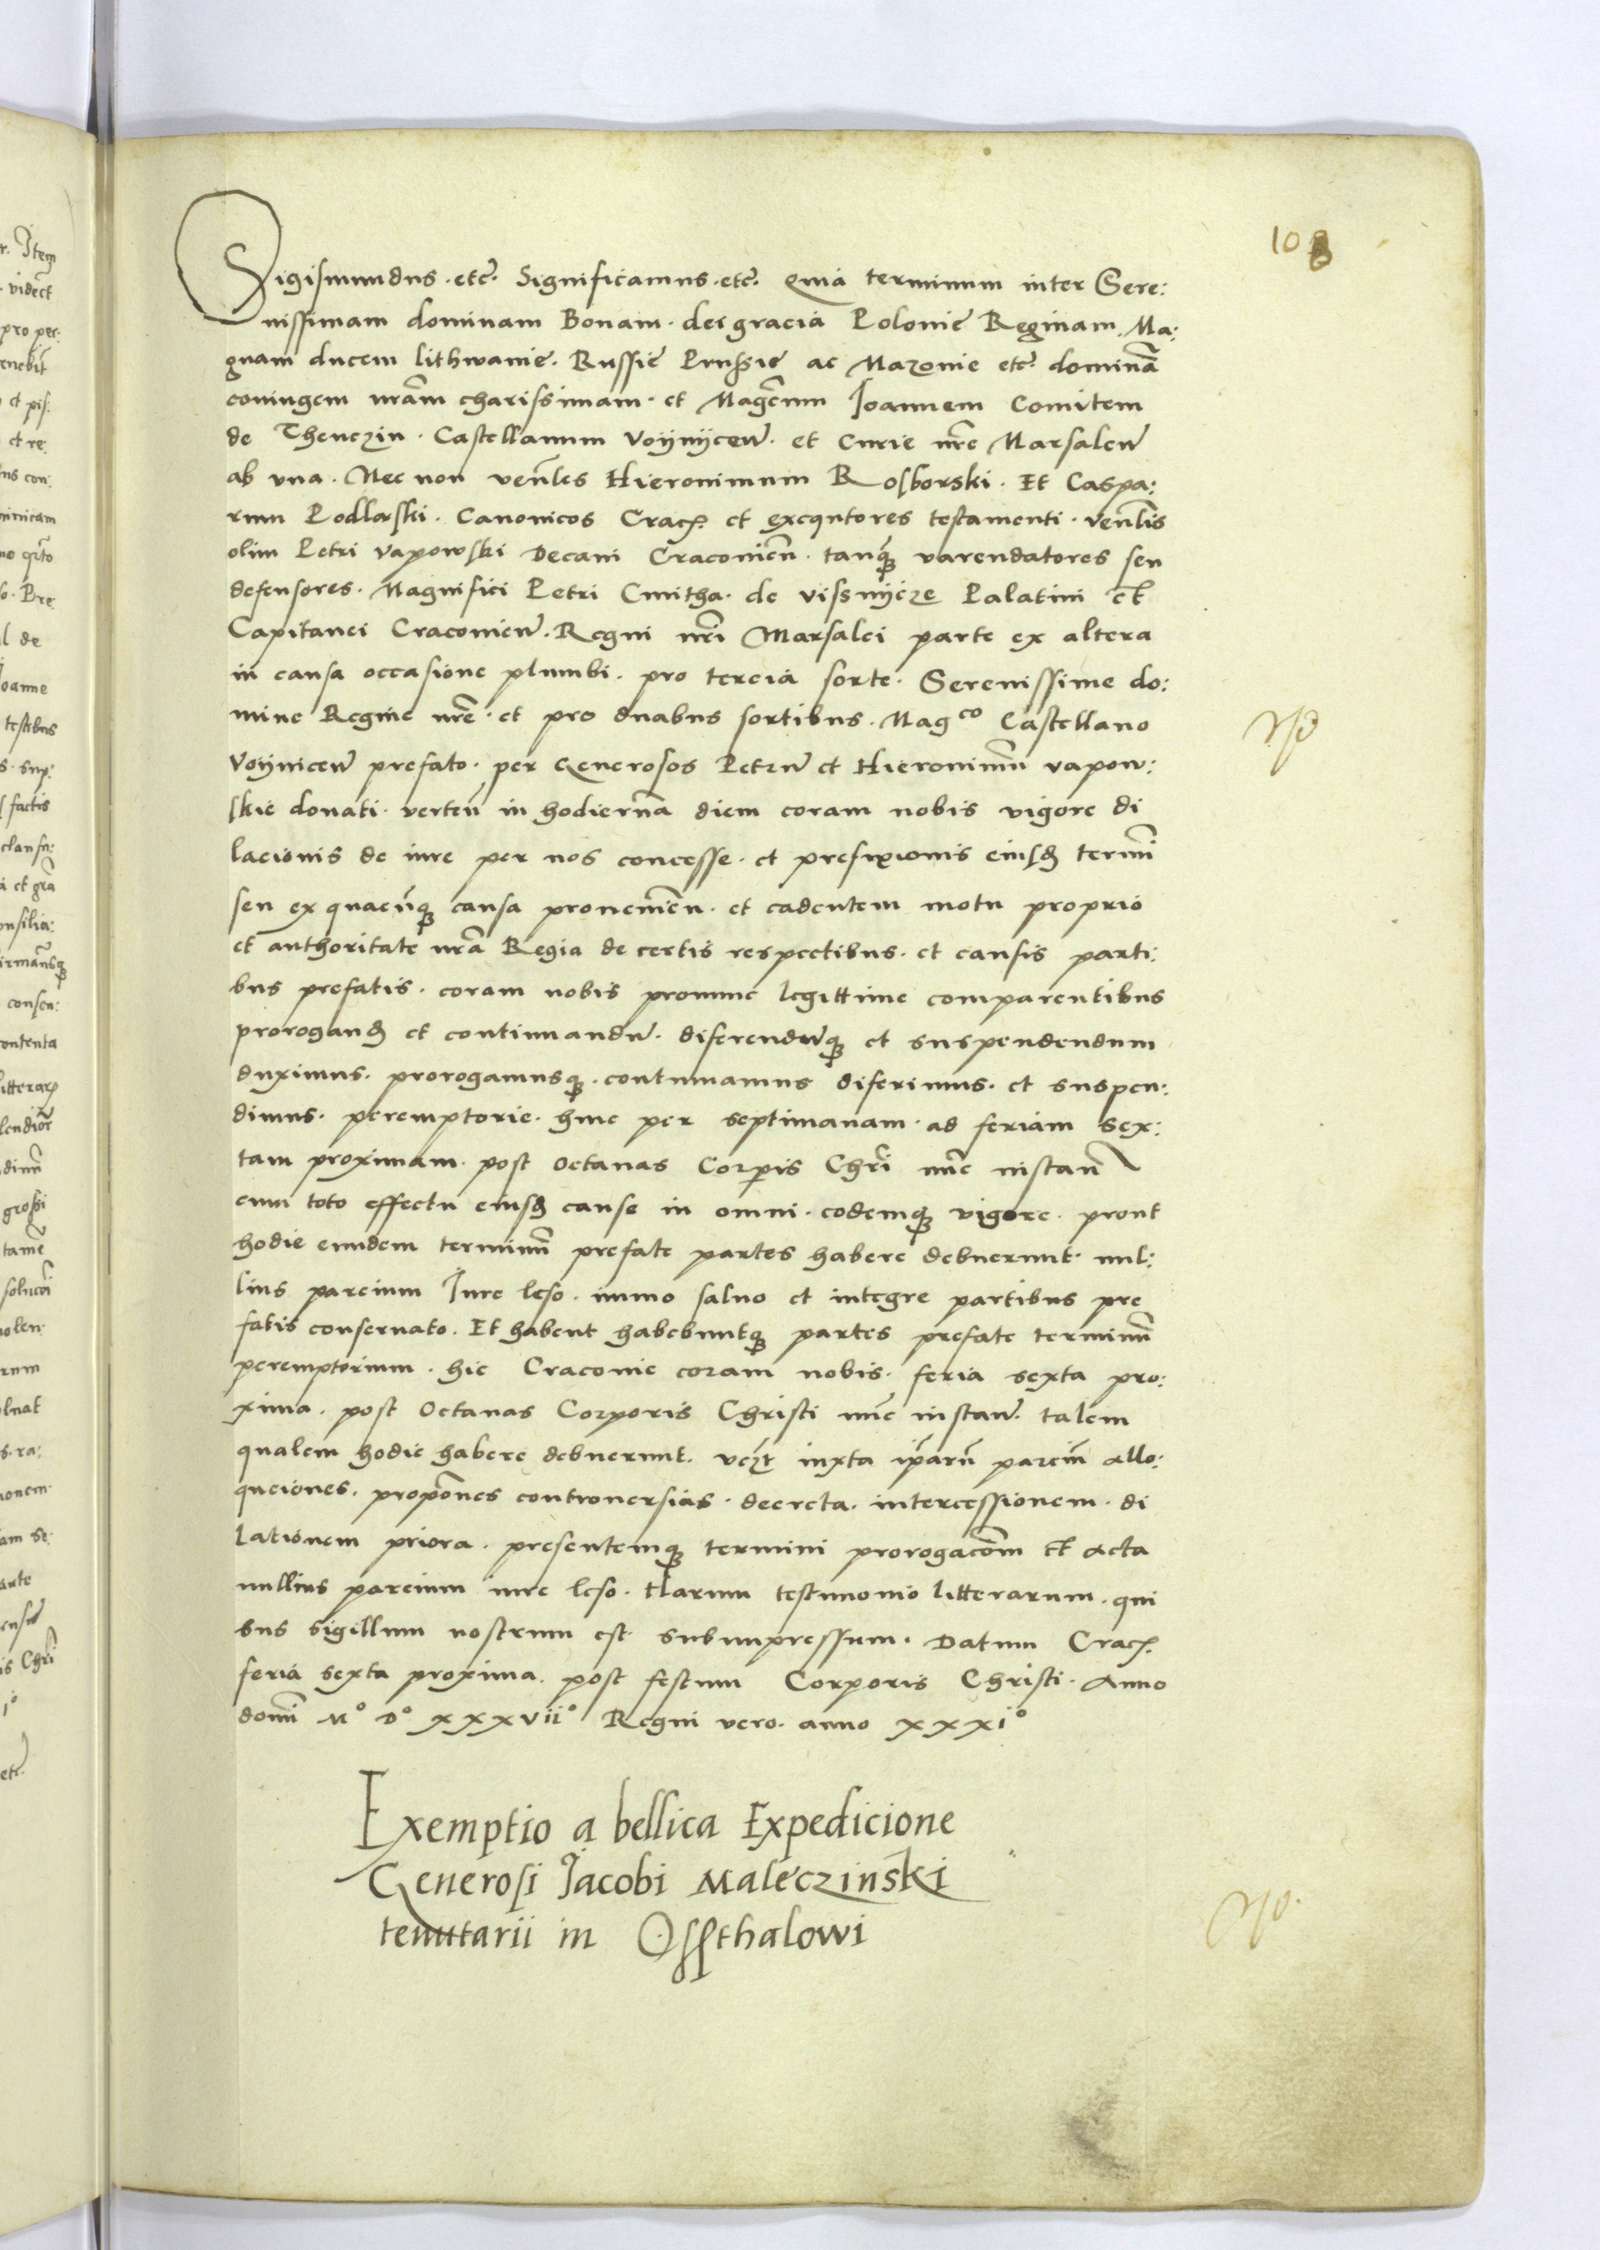 108
Sigismundus. etc̄. Significamus. etc̄. Quia terminum inter Sere:
nissimam dominam Bonam. dei gracia Polonie Reginam, Ma:
gnam ducem lithwanie. Russie Prussie ac Mazouie etc̄ dominā
coniugem nr̄am charissimam. et Magcum Joannem Comitem
de Thenczin. Castellanum Voynyceñ. et Curie nr̄e Marsalcū
ab vna. Nec non ven̄les Hieronimum Rosborski. Et Caspa:
rum Podlarski. Canonicos Crac̄. et exequtores testamenti. ven̄lis
olim Petri vapowski Decani Craconieñ. tanq̄ varendatores seu
defensores. Magnifici Petri Cmitha. de vissnycze Palatini et
Capitanei Craconieñ. Regni nr̄i Marsalci parte ex altera
in causa occasione plumbi. pro tercia sorte. Serenissime do:
mine Regine nr̄e. et pro duabus sortibus. Magco Castellano
Voyniceñ prefato. per Generosos Petrū et Hieronimū vapow:
skie donati. verteñ in hodiernā diem coram nobis vigore di
lacionis de iure per nos concesse. et prefixionis eiusd̄ termī
seu ex quacūq̄ causa proueniēn. et cadentem motu proprio
et authoritate nr̄a Regia de certis respectibus. et causis parti:
bus prefatis. coram nobis pronunc legittime comparentibus
prorogand̄ et continuandū. diferendūq̄ et suspendendum
duximus. prorogamusq̄. continuamus diferimus. et suspen:
dimus. peremptorie. hinc per septimanam. ad feriam Sex:
tam proximam. post Octauas Corp̄is Chr̄i nūc instañ
cum toto effectu eiusd̄ cause in omni. eodemq̄ vigore. prout
hodie eundem terminū prefate partes habere debuerunt. nul:
lius parcium Jure leso. immo saluo et integre partibus pre
fatis conseruato. Et habent habebuntq̄ partes prefate terminū
peremptorium. hic Craconie coram nobis. feria sexta pro:
xima. post Octauas Corporis Christi nūc instañ. talem
qualem hodie habere debuerunt. iuxta ip̄arū parciū allo:
quciones. prop̄ones controuersias. decreta. intercessionem. di
lationem priora. presentemq̄ termini prorogacōm et acta
nullius parcium iure leso. Harum testimonio litterarum. qui
bus sigillum nostrum est subimpressum. Datum Crac̄.
feria sexta proxima. post festum Corporis Christi. Anno
domī Mº Dº xxxviiº Regni vero. anno xxxiº
Exemptio a bellica Expedicione
Generosi Jacobi Maleczinski
tenutarii in Ossthalowi